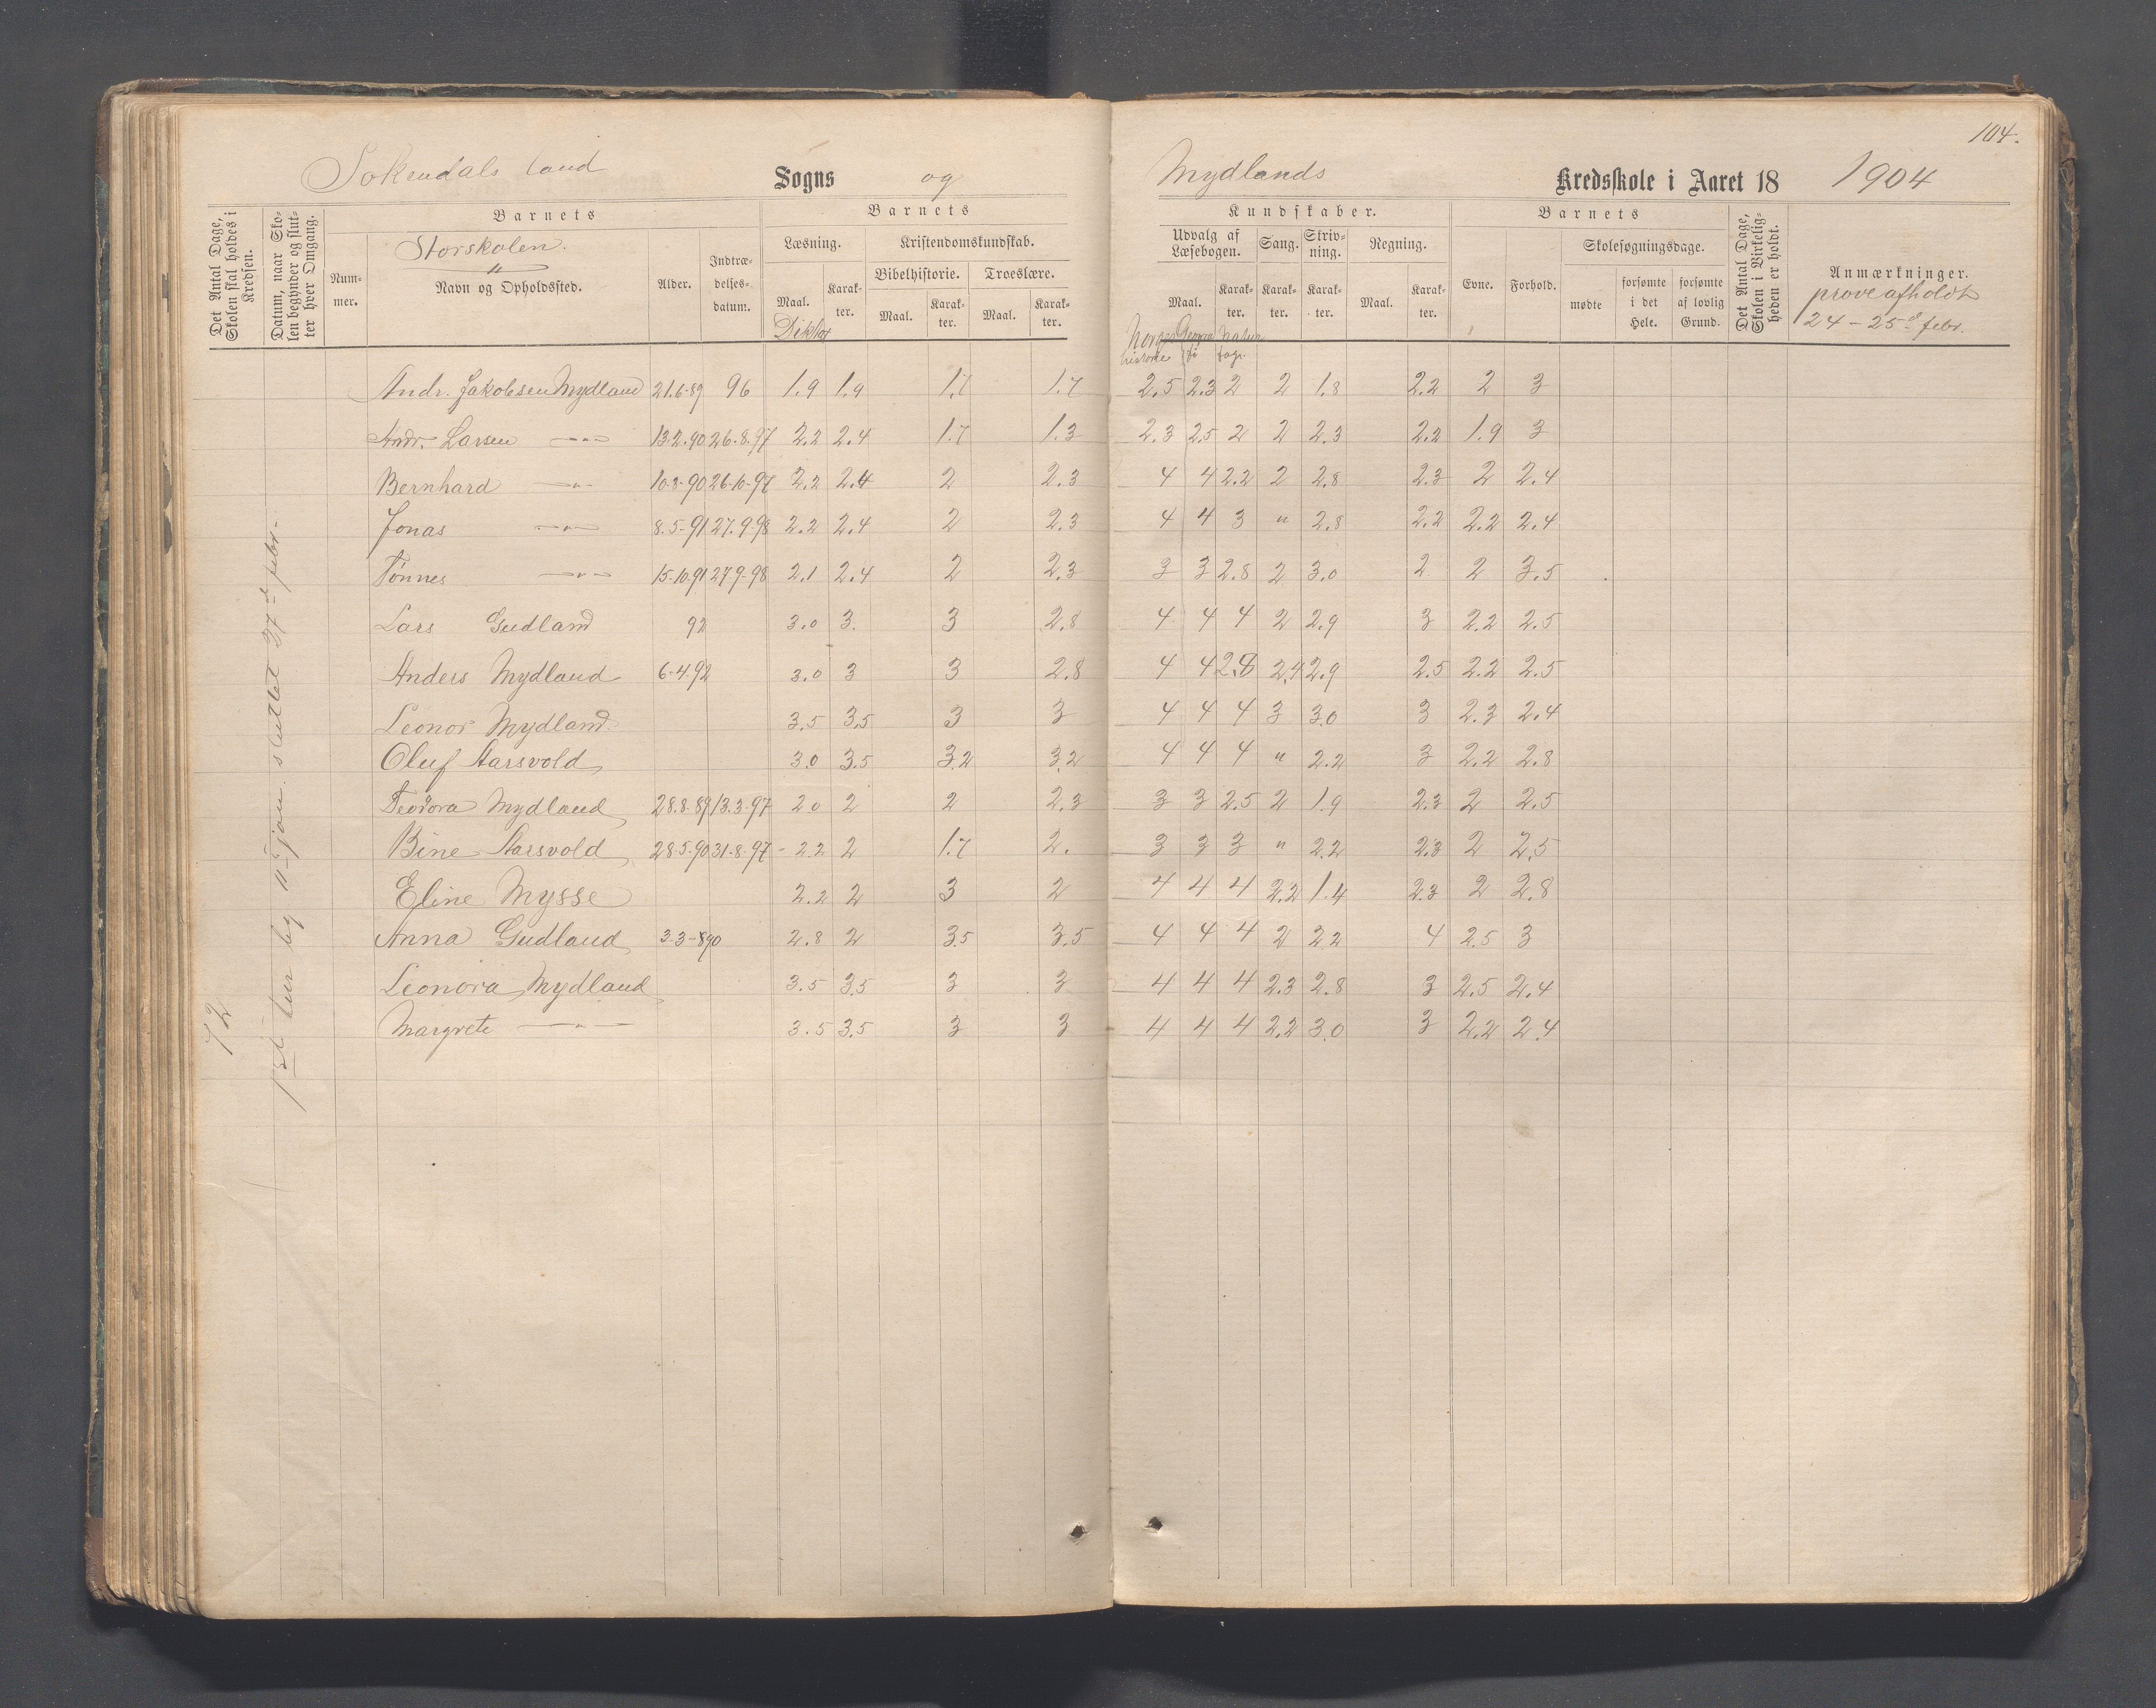 104.
Sokendals land Sogns og Mydlands Kredsskole i Aaret 18 1904
Det Antal Dage, Skolen skal holdes i Kredsen.
Datum, naar Skolen begynder og slutter hver Omgang.
Barnets
Storskolen.
Nummer.
Navn og Opholdssted.
Alder.
Indtrædelses-datum.
Barnets
Læsning.
Maal.
Diktat
Karakter.
Kristendomskundskab.
Bibelhistorie.
Maal.
Karakter.
Troeslære.
Maal.
Karakter.
Kundskaber.
Udvalg af Læsebogen.
Maal.
Karakter.
Norges historie
Geografi
Naturfag.
Sang.
Karakter.
Skrivning.
Karakter.
Regning.
Maal.
Karakter.
Barnets
Evne.
Forhold.
Skolesøgningsdage.
mødte
forsømte i det Hele.
forsømte af lovlig Grund.
Det Antal Dage, Skolen i Virkeligheden er holdt.
Anmærkninger.
prøve afholdt
24 - 25de febr.
72
1st tur beg 11te jan. sluttet 27de febr.
Andr. Jakobsen Mydland 21.6-89 96 1.9 1.9 1.7 1.7 2.5 2.3 2 2 1.8 2.2 2 3
Andr. Larsen —"— 13.2.90 26.8.97 2.2 2.4 1.7 1.3 2.3 2.5 2 2 2.3 2.2 1.9 3
Bernhard —"— 10-8-90 26-10-97 2.2 2.4 2 2.3 4 4 2.2 2 2.8 2.3 2 2.4
Jonas —"— 8.5-91 27.9-98 2.2 2.4 2 2.3 4 4 3 " 2.8 2.2 2.2 2.4
Tønnes —"— 15-10.91 27.9-98 2.1 2.4 2 2.3 3 3 2.8 2 3.0 2 2 3.5
Lars Gudland 92 3.0 3. 3 2.8 4 4 4 2 2.9 3 2.2 2.5
Anders Mydland 6-4.92 3.0 3 3 2.8 4 4 2.8 2.4 2.9 2.5 2.2 2.5
Leonor Mydland 3.5 3.5 3 3 4 4 4 3 3.0 3 2.3 2.4
Oluf Aarsvold 3.0 3.5 3.2 3.2 4 4 4 " 2.2 3 2.2 2.8
Teodora Mydland 28.8.89 13.3-97 2.0 2 2 2.3 3 3 2.5 2 1.9 2.3 2 2.5
Bine Aarsvold 28.5.90 31-8-97 - 2.2 2 1.7 2. 3 3 3 " 2.2 2.3 2 2.5
Eline Mysse 2.2 2 3 2 4 4 4 2.2 1.4 2.3 2 2.8
Anna Gudland 3-3-890 2.8 2 3.5 3.5 4 4 4 2 2.2 4 2.5 3
Leonora Mydland 3.5 3.5 3 3 4 4 4 2.3 2.8 3 2.5 2.4
Margrete —"— 3.5 3.5 3 3 4 4 4 2.2 3.0 3 2.2 2.4